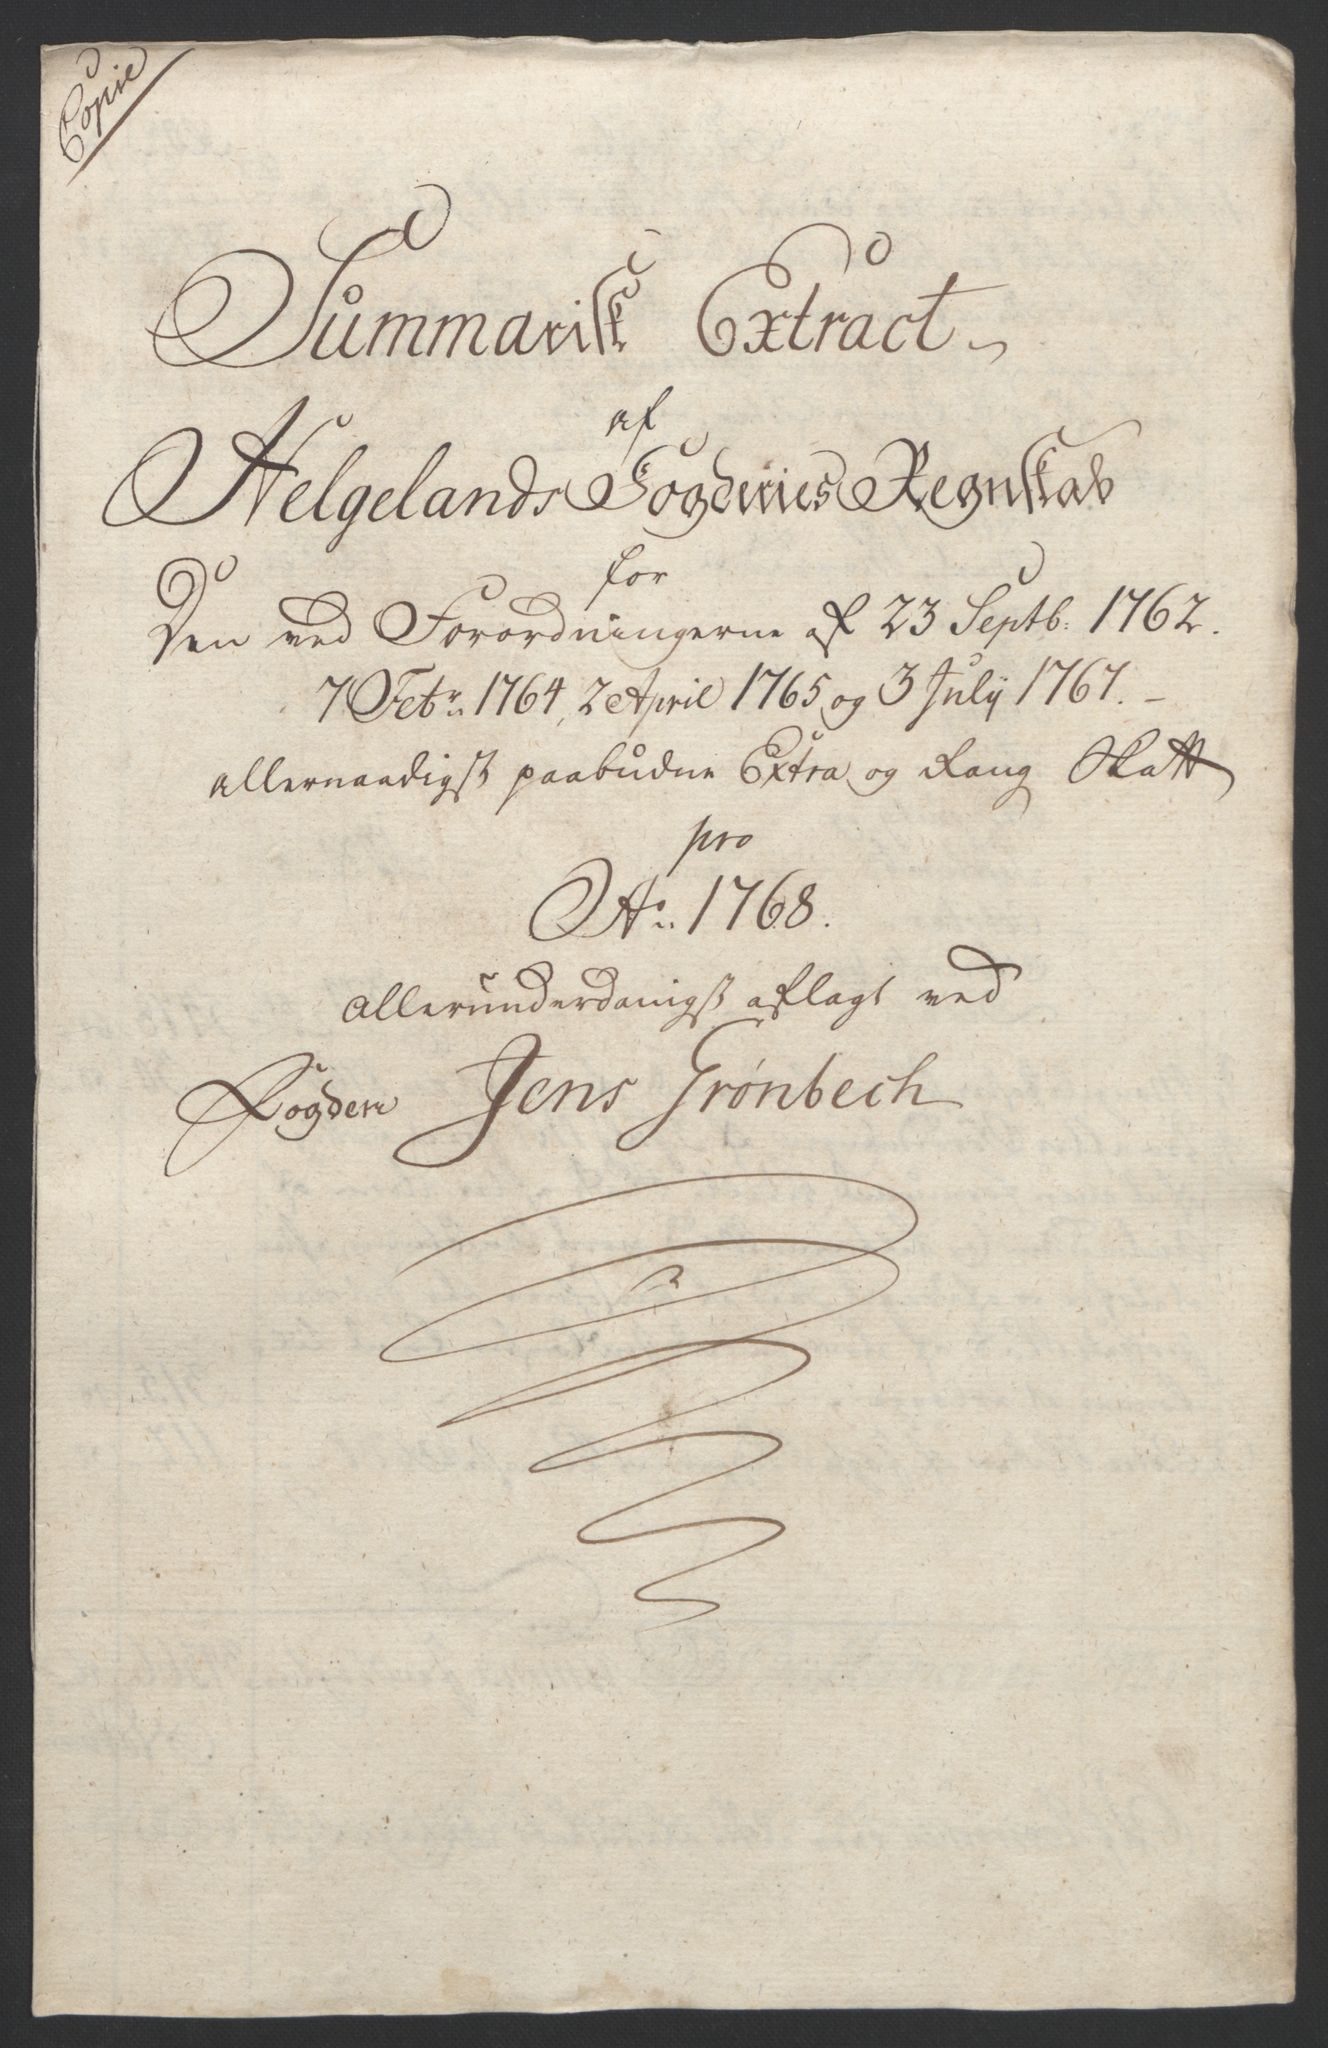 Copie
Summarisk Extract
af
Helgelands Fogderies Regnskab
for
Den ved Forordningerne af 23 Septb. 1762.
7 Febr. 1764, 2 April 1765 og 3 July 1767. –
allernaadigst paabudne Extra og Rang Skatt
pro
Ao. 1768.
allerunderdanigst aflagt ved
Fogden Jens Grønbech